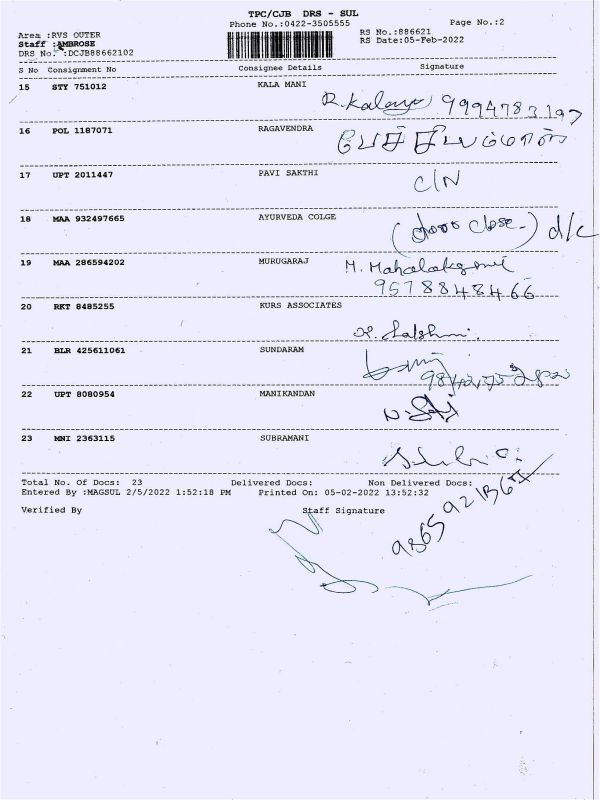 TPC/CJB DRS - SUL
Phone No.:0422-3505555
Page No.:2
Area :RVS OUTER
RS No.:886621
Staff :AMBROSE
RS Date:05-Feb-2022
DRS No. :DCJB88662102
S No Consignment No Consignee Details Signature
15 STY 751012 KALA MANI
R. 9994783197
16 POL 1187071 RAGAVENDRA
17 UPT 2011447 PAVI SAKTHI
C/N
18 MAA 932497665 AYURVEDA COLGE
(door close) d/c
19 MAA 286594202 MURUGARAJ
M. Mahalakshmi
9578848466
20 RKT 8485255 KURS ASSOCIATES
21 BLR 425611061 SUNDARAM
22 UPT 8080954 MANIKANDAN
23 MNI 2363115 SUBRAMANI
Total No. Of Docs: 23 Delivered Docs: Non Delivered Docs:
Entered By :MAGSUL 2/5/2022 1:52:18 PM Printed On: 05-02-2022 13:52:32
Verified By Staff Signature